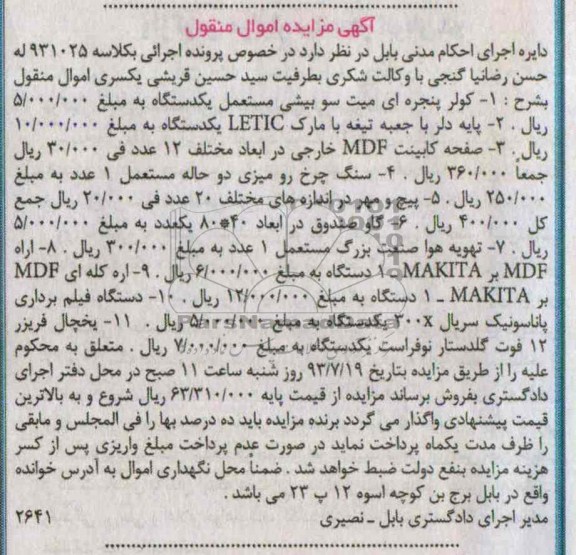 آگهی مزایده اموال منقول
دایره اجرای احکام مدنی بابل در نظر دارد در خصوص پرونده اجرائی بکلاسه ۹۳۱۰۲۵ له
حسن رضانیا گنجی با وکالت شکری بطرفیت سید حسین قریشی یکسری اموال منقول
بشرح : ۱- کولر پنجره ای میت سو بیشی مستعمل یکدستگاه به مبلغ ۵/۰۰۰/۰۰۰
ریال . ۲- پایه دلر با جعبه تیغه با مارک LETIC یکدستگاه به مبلغ ۱۰/۰۰۰/۰۰۰
ریال . ۳- صفحه کابینت MDF خارجی در ابعاد مختلف ۱۲ عدد فی ۳۰/۰۰۰ ریال
جمعاً ۳۶۰/۰۰۰ ریال . ۴- سنگ چرخ رو میزی دو حاله مستعمل ۱ عدد به مبلغ
۲۵۰/۰۰۰ ریال . ۵- پیچ و مهر در اندازه های مختلف ۲۰ عدد فی ۲۰/۰۰۰ ریال جمع
کل ۴۰۰/۰۰۰ ریال . ۶- گاو صندوق در ابعاد ۴۰*۸۰ یکعدد به مبلغ ۵/۰۰۰/۰۰۰
ریال . ۷- تهویه هوا صنعت بزرگ مستعمل ۱ عدد به مبلغ ۳۰۰/۰۰۰ ریال . ۸- اراه
MDF بر MAKITA - ۱ دستگاه به مبلغ ۶/۰۰۰/۰۰۰ ریال . ۹- اره کله ای MDF
بر MAKITA ـ ۱ دستگاه به مبلغ ۱۲/۰۰۰/۰۰۰ ریال . ۱۰- دستگاه فیلم برداری
پاناسونیک سریال ۳۰۰x یکدستگاه به مبلغ ۵/۰۰۰/۰۰۰ ریال . ۱۱- یخچال فریزر
۱۲ فوت گلدستار نوفراست یکدستگاه به مبلغ ۷/۰۰۰/۰۰۰ ریال . متعلق به محکوم
علیه را از طریق مزایده بتاریخ ۹۳/۷/۱۹ روز شنبه ساعت ۱۱ صبح در محل دفتر اجرای
دادگستری بفروش برساند مزایده از قیمت پایه ۶۳/۳۱۰/۰۰۰ ریال شروع و به بالاترین
قیمت پیشنهادی واگذار می گردد برنده مزایده باید ده درصد بها را فی المجلس و مابقی
را ظرف مدت یکماه پرداخت نماید در صورت عدم پرداخت مبلغ واریزی پس از کسر
هزینه مزایده بنفع دولت ضبط خواهد شد . ضمناً محل نگهداری اموال به آدرس خوانده
واقع در بابل برج بن کوچه اسوه ۱۲ پ ۲۳ می باشد .
مدیر اجرای دادگستری بابل ـ نصیری ۲۶۴۱